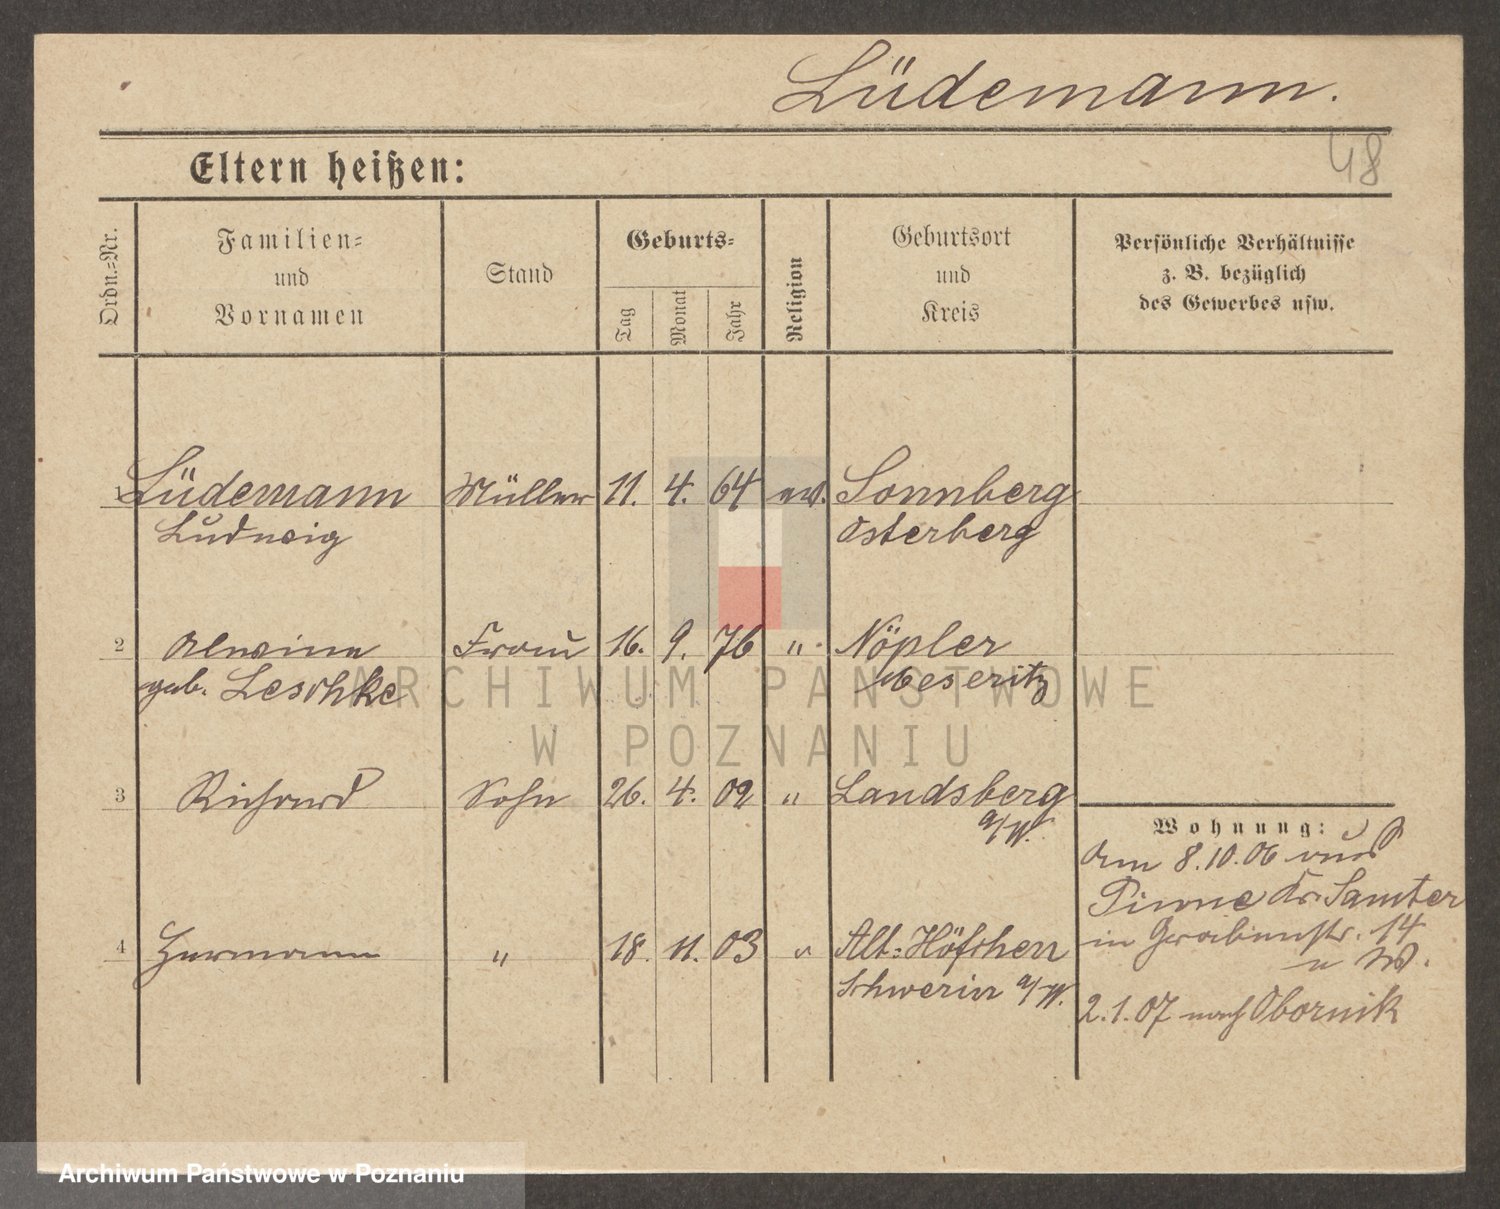 Lüdemann.
48
Eltern heißen:
Ordn.=Nr.
Familien=
und
Vornamen
Stand
Geburts=
Tag
Monat
Jahr
Religion
Geburtsort
und
Kreis
Persönliche Verhältnisse
z. B. bezüglich
des Gewerbes usw.
1 Lüdemann Müller 11. 4. 64 ev. Sonnberg
Ludwig Osterberg
2 Alwine Frau 16. 9. 76 " Nöpler
geb. Leschke Meseritz
3 Richard Sohn 26. 4. 02 " Landsberg
a/W.
Wohnung:
Am 8.10.06 aus
Pinne Kr. Samter
in Grabenstr. 14
4 Hermann " 18. 11. 03 " Alt=Höfchen
Schwerin a/W.
2.1.07 nach Obornik
ARCHIWUM PAŃSTWOWE
W POZNANIU
Archiwum Państwowe w Poznaniu